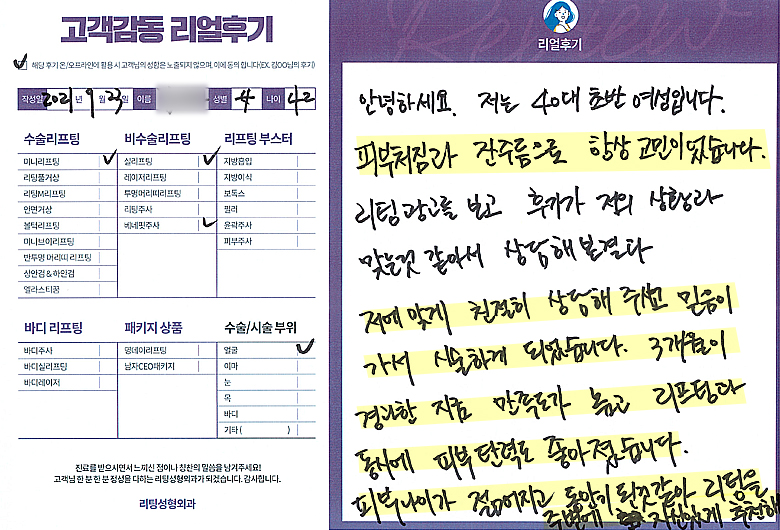 고객감동 리얼후기
해당 후기 온/오프라인에 활용 시 고객님의 성함은 노출되지 않으며, 이에 동의 합니다(EX. 김OO님의 후기)
작성일 2021 년 9 월 23 일 이름 성별 나이 42
수술리프팅
미니리프팅
리팅풀거상
리팅M리프팅
안면거상
볼턱리프팅
미니브이리프팅
반투명 머리띠 리프팅
상안검 & 하안검
엘라스티꿈
비수술리프팅
실리프팅
레이저리프팅
투명머리띠리프팅
리팅주사
베네핏주사
리프팅 부스터
지방흡입
지방이식
보톡스
필러
윤곽주사
피부주사
바디 리프팅
바디주사
바디실리프팅
바디레이저
패키지 상품
명네아리프팅
남자CEO패키지
수술/시술 부위
얼굴
이마
눈
목
바디
기타 ( )
진료를 받으시면서 느끼신 점이나 칭찬의 말씀을 남겨주세요!
고객님 한 분 한 분 정성을 다하는 리팅성형외과가 되겠습니다. 감사합니다.
리팅성형외과
Review
리얼후기
안녕하세요. 저는 40대 초반 여성입니다.
피부처짐과 잔주름으로 항상 고민이었습니다.
리팅광고를 보고 후기가 저의 상황과
맞는것 같아서 상담해 보겠다
저에 맞게 친절히 상담해 주셨고 믿음이
가서 시술하게 되었습니다. 3개월이
경과한 지금 만족도가 높고 리프팅과
동시에 피부탄력도 좋아졌습니다.
피부나이가 젊어지고 동안이 된것같아 리팅을
주변에 자신있게 추천해